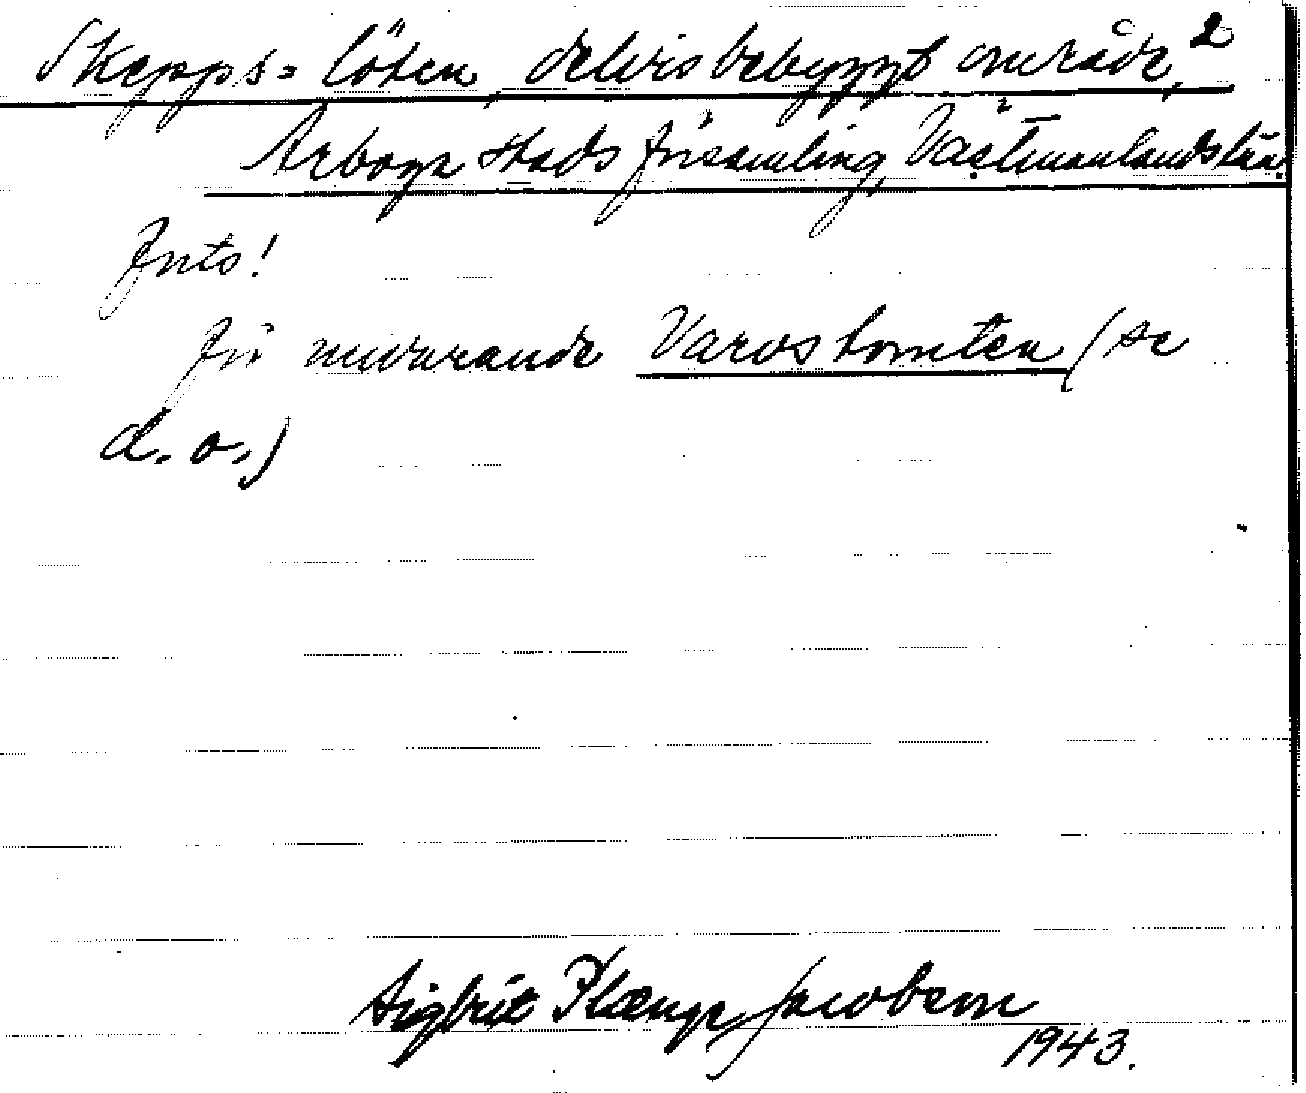 Skepps-löten, delvis bebyggt område, 2
Arboga stads församling, Västmanlands län.
Forts!
för nuvarande Varvstomten (se
d. o.)
Sigbrit Plænge Jacobson
1943.